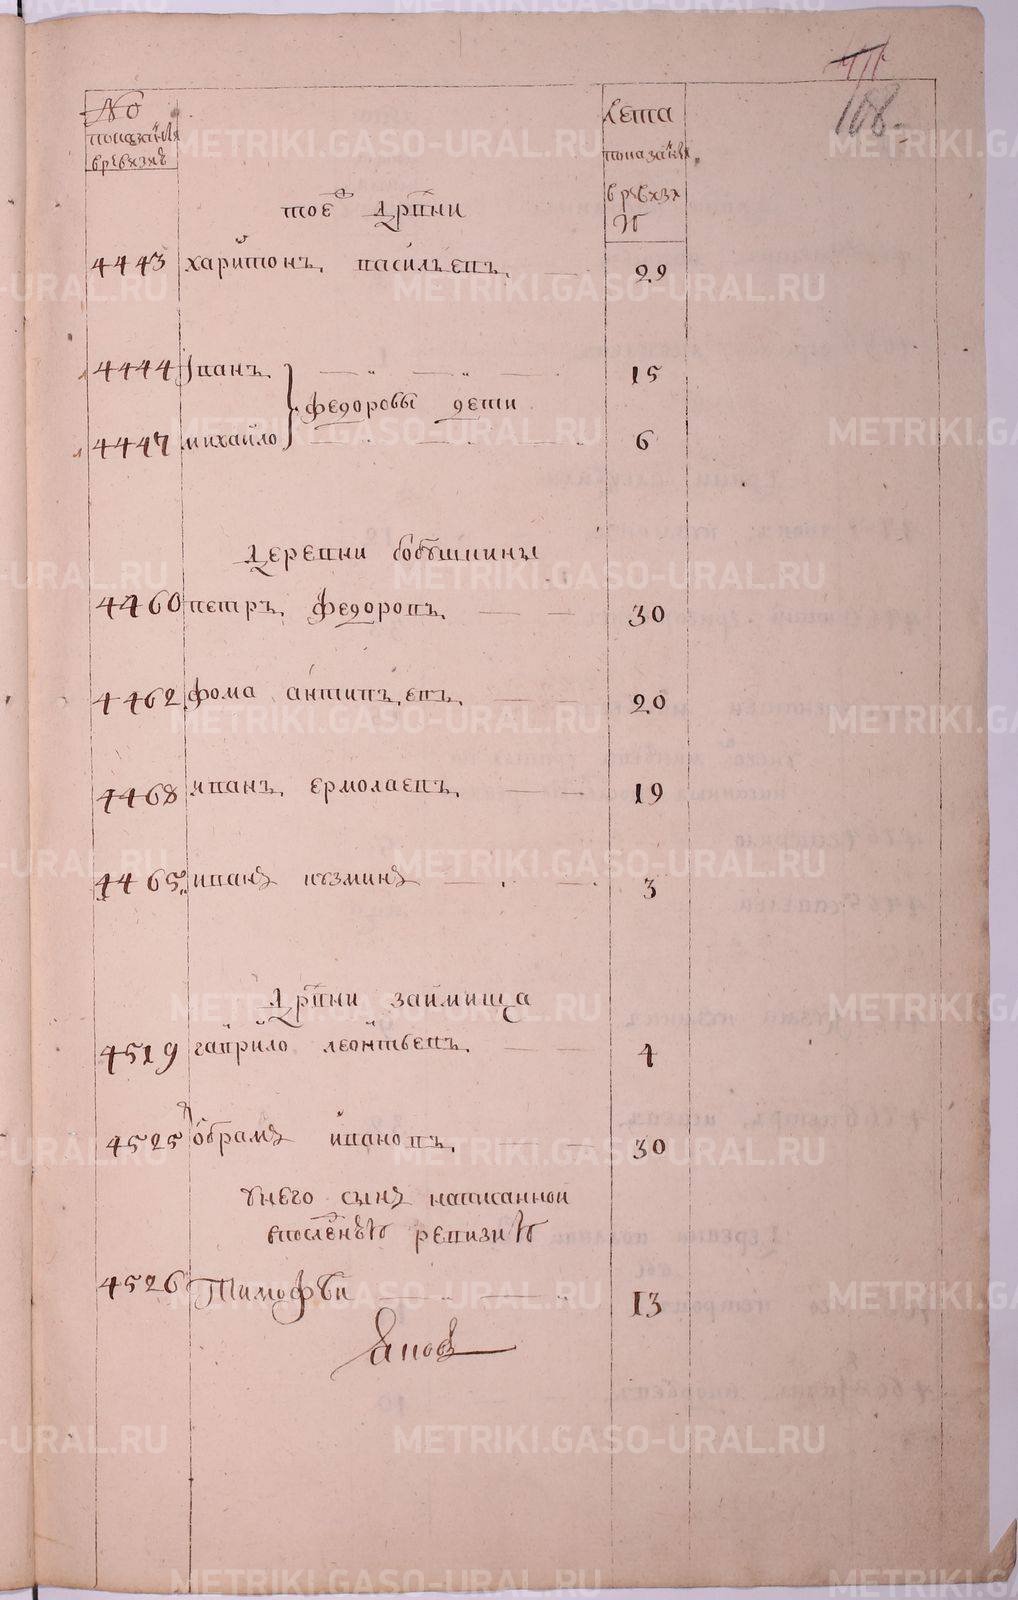 108.
№
показанїя
в ревизіи
Лета
показанїя
в ревизи
и
тоеⷤ дрвни
4443 харитонъ. василъевъ. 29
4444 Иванъ. 15
федоровы дети
4447 михайло 6
деревни бобушкины
4460 петръ. федоровъ. 30
4462 фома антипъевъ. 20
4468 иванъ. ермолаевъ. 19
4465 иванъ кузминъ 3
дрвни займища
4519 гаврило леонтьевъ. 4
4525 обрамъ ивановъ. 30
у него сынъ написанной
в после неѣ ревизии
4526 Тимофѣи 13
METRIKI.GASO-URAL.RU